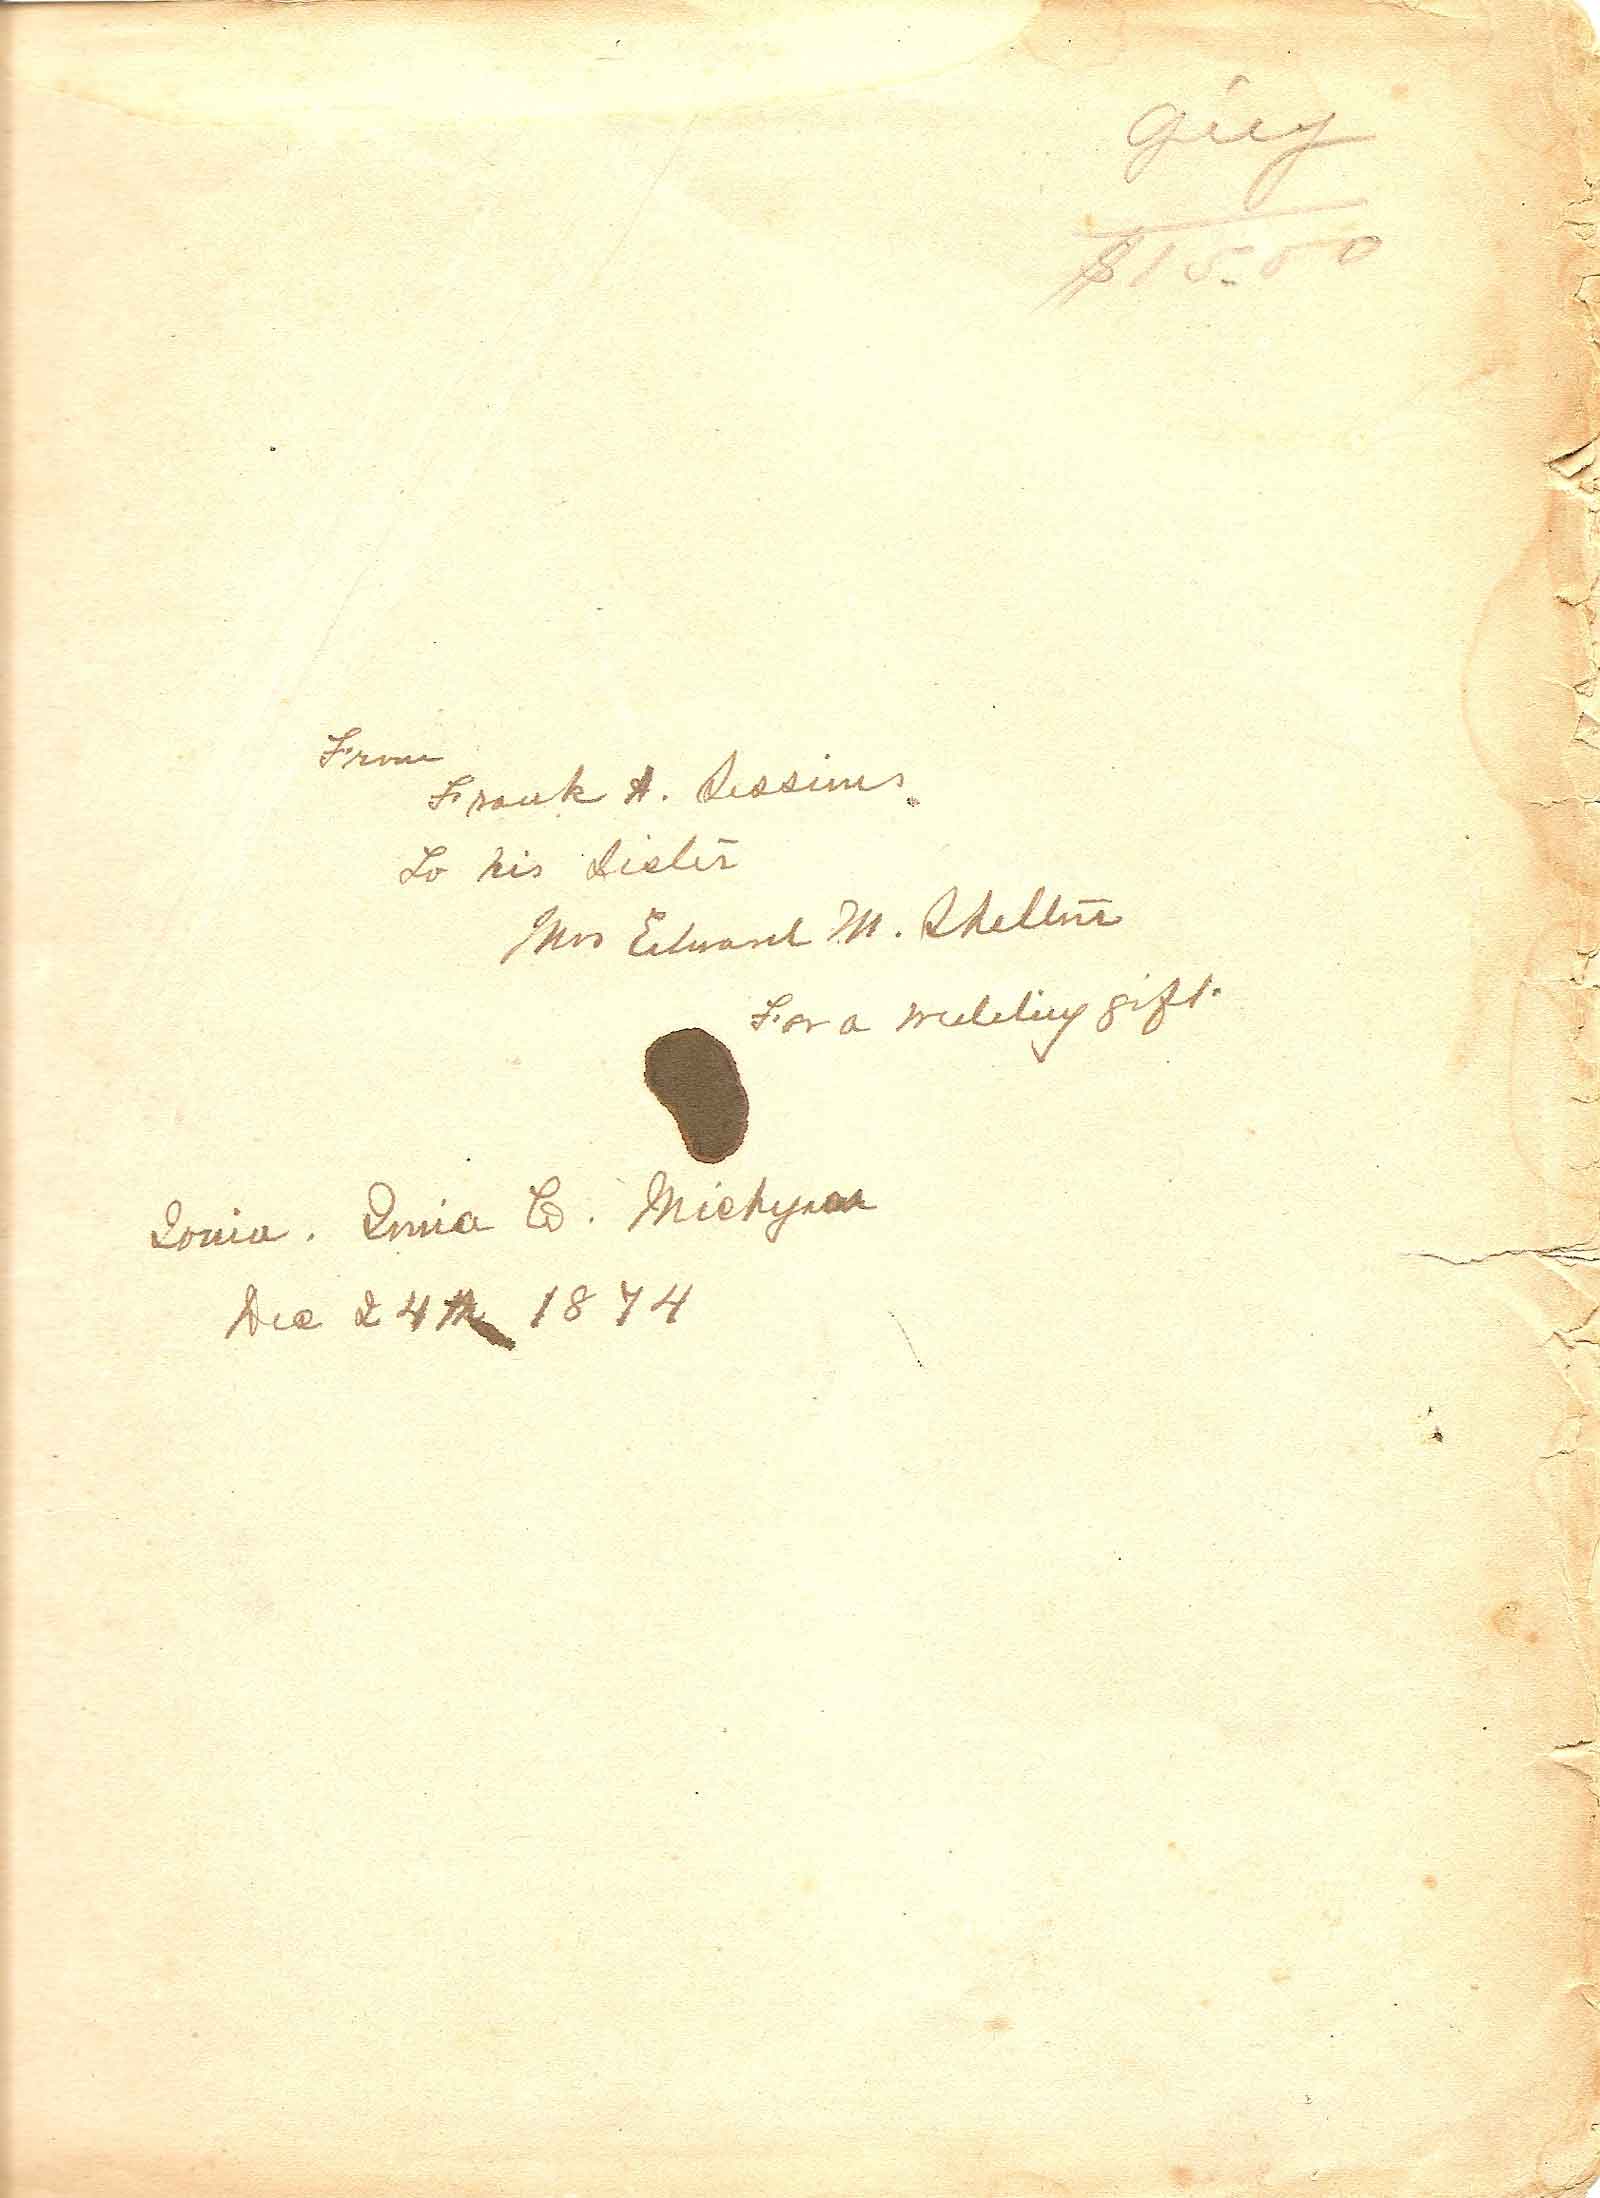 $15.00
From
Frank A. Sessions.
To his Sister
Mrs Edward M.
For a wedding gift.
Ionia. Ionia Co. Michigan
Dec 24th 1874